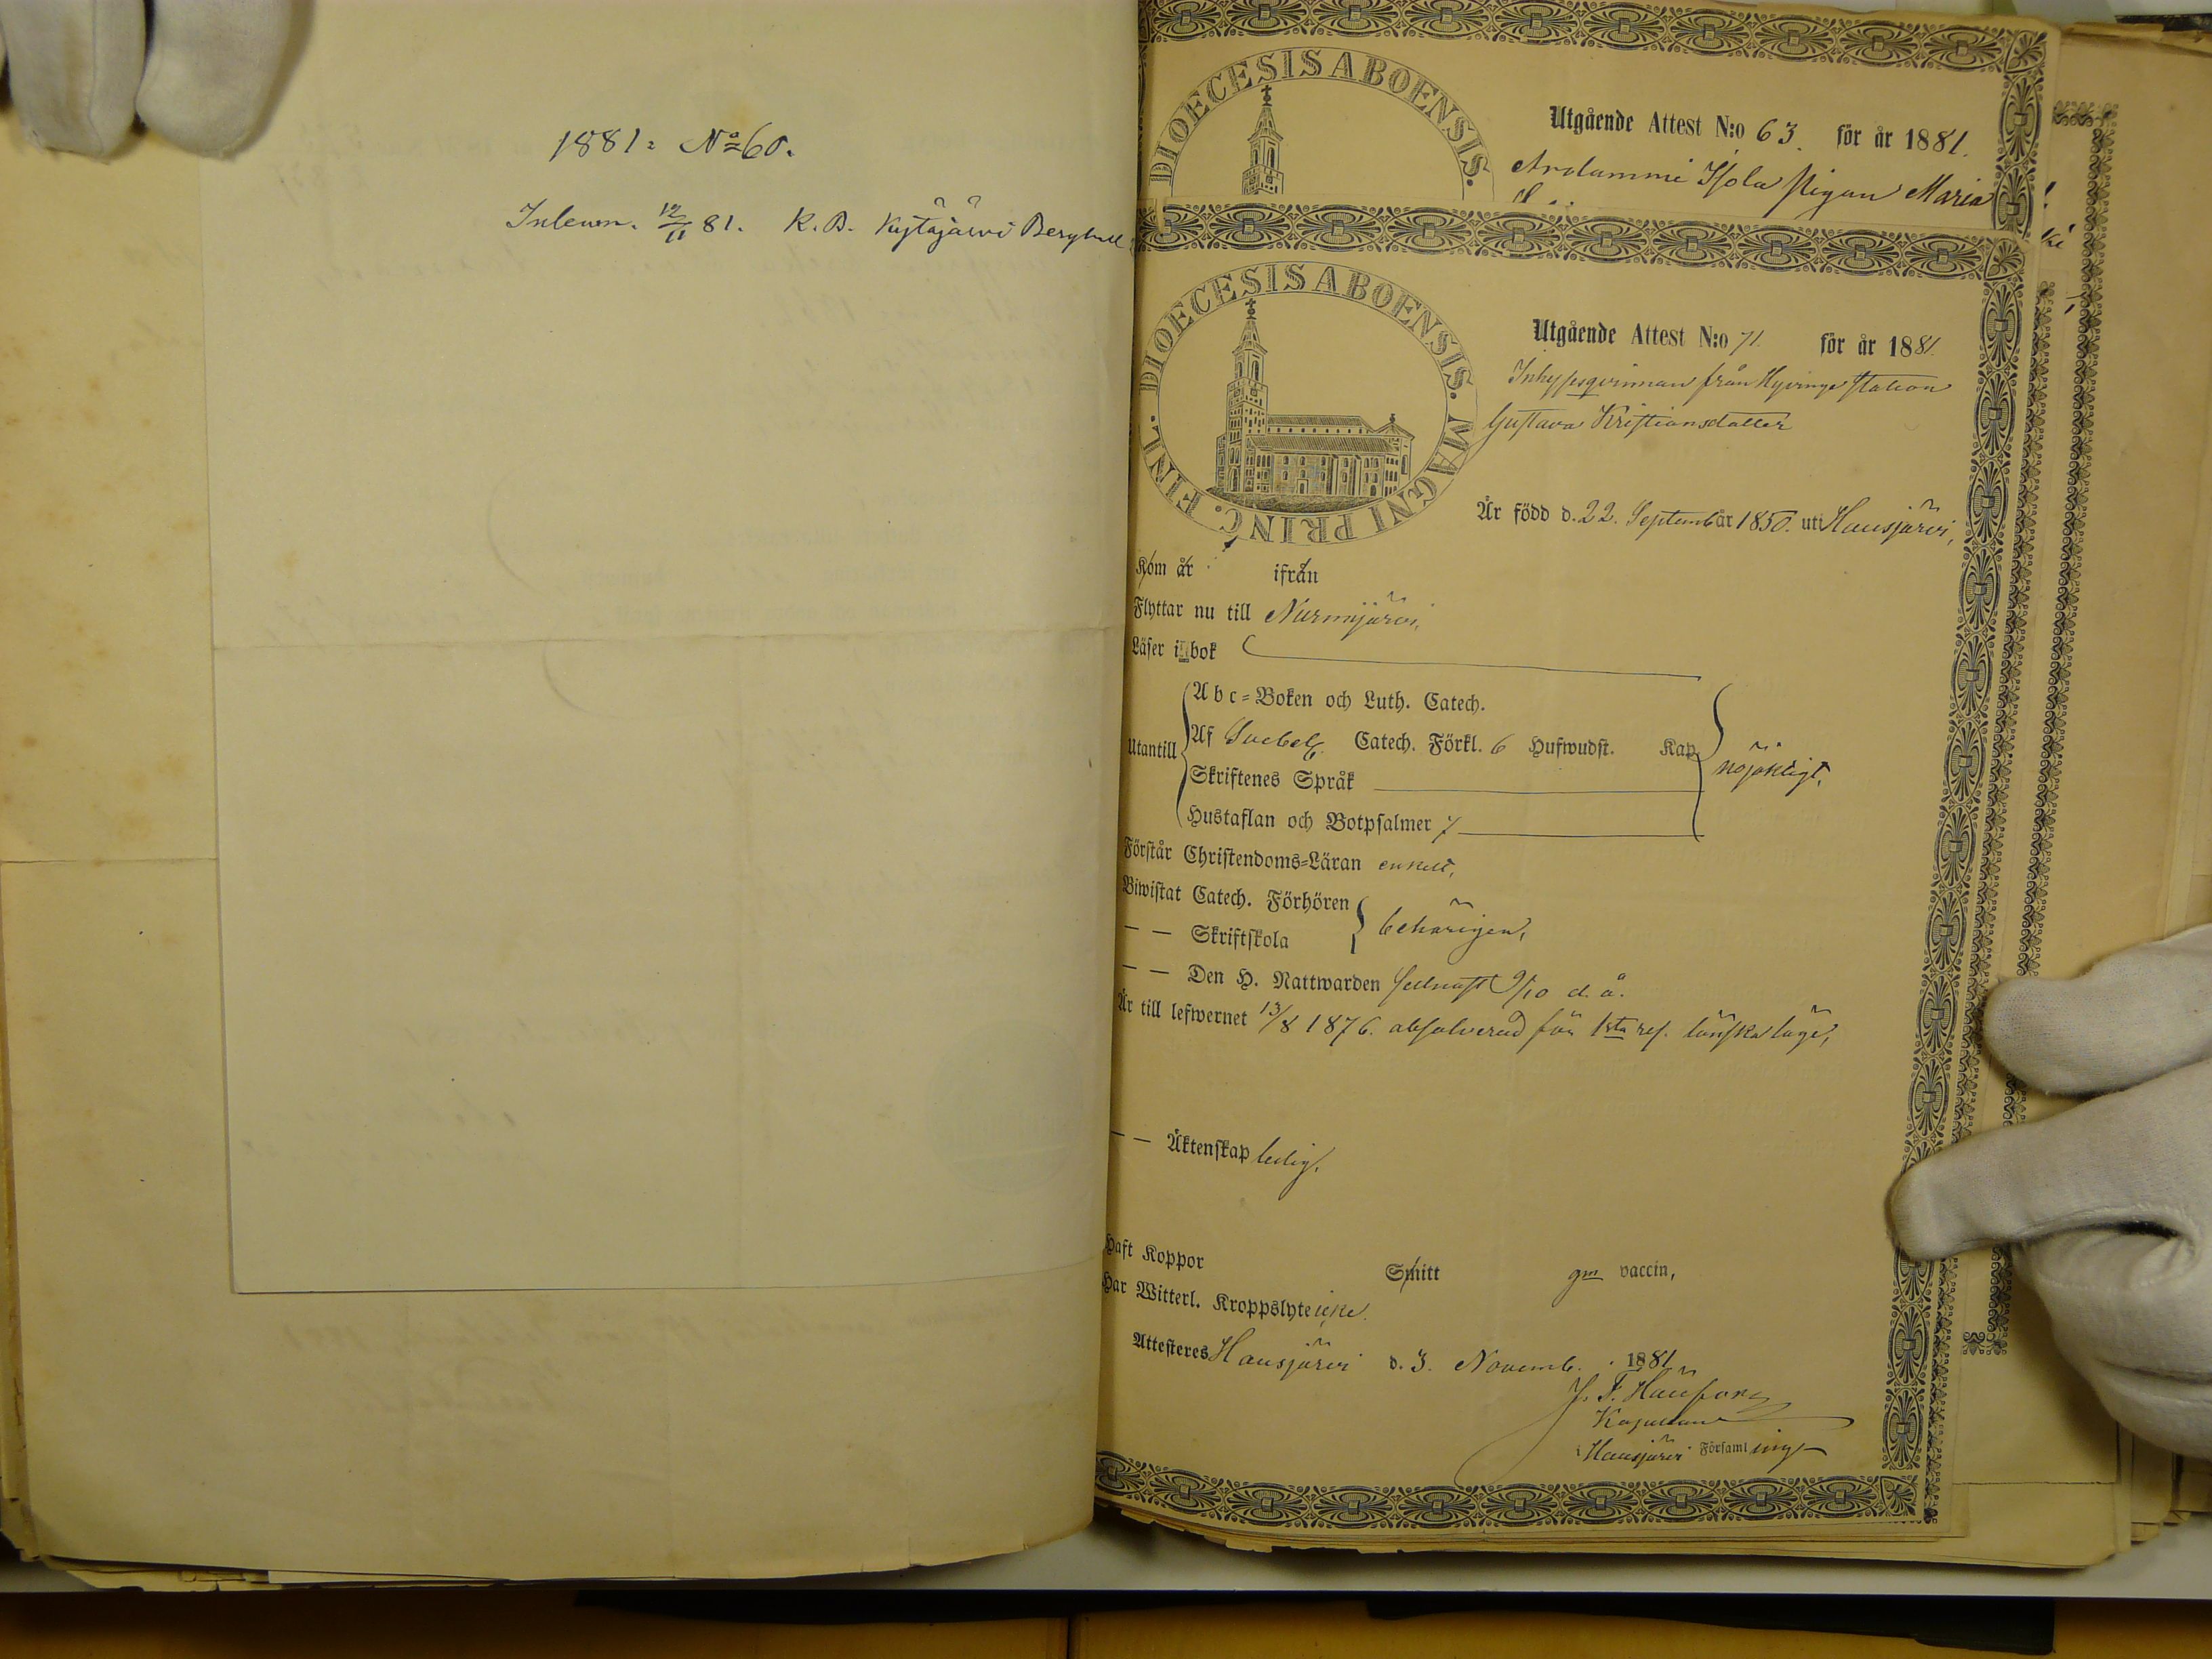 1881. No 60.
Inlemn. 12/11 81. K. B. Kytäjärvi Berghell
DIOECESIS ABOENSIS.
Utgående Attest N:o 63. för år 1881.
Arolammi Isola Pigan Maria
DIOECESIS ABOENSIS. MAGNI PRINC. FINL.
Utgående Attest N:o 71. för år 1881.
Inhysesqvinnan från Hyvinge station
Gustava Kristiansdotter
Är född d. 22. Septemb år 1850. uti Hausjärvi,
Kom år ifrån
Flyttar nu till Nurmijärvi,
Läser i bok
Utantill
Abc-Boken och Luth. Catech.
Af Svebel. Catech. Förkl. 6 Hufwudst. Kap.
Skriftenes Språk
nöjaktigt,
Hustaflan och Botpsalmer 7
Förstår Christendoms-Läran enkelt,
Biwistat Catech. Förhören
— — Skriftskola
behörigen,
— — Den H. Nattwarden sednast 9/10 d. å.
Är till lefwernet 13/8 1876. absolverad för 1sta res. lönskaläge,
— — Äktenskap ledig.
Haft Koppor Smitt gm vaccin,
Har Witterl. Kroppslyte icke.
Attesteres Hausjärvi d. 3. Novemb. 1881
J. F.
Kapellan
Hausjärvi Församling